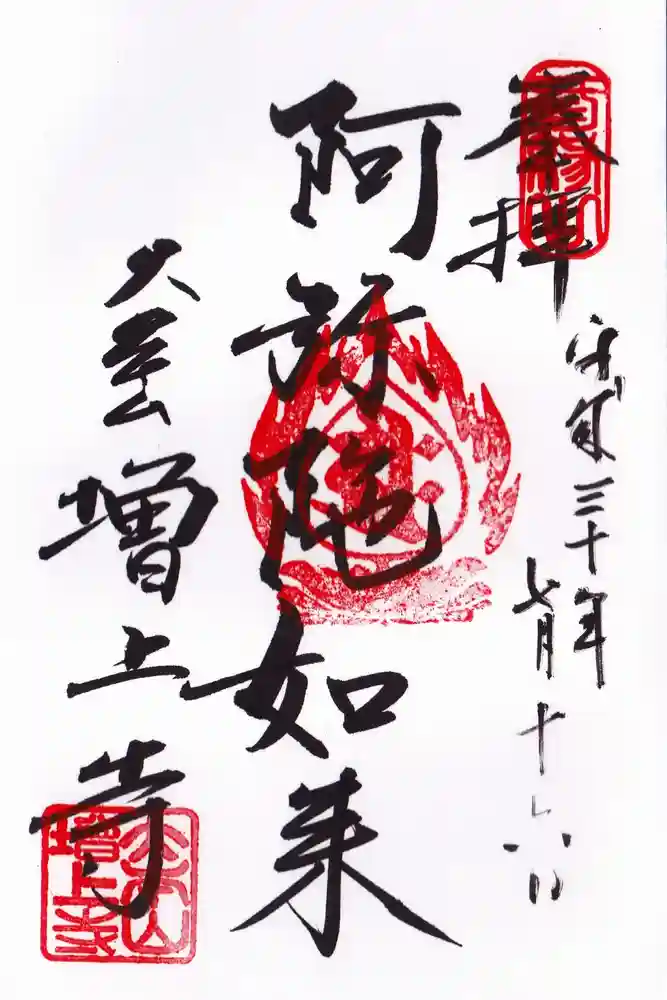 奉拝
平成三十年
七月十六日
阿弥陀如来
大本山
増上寺
大本山
増上寺